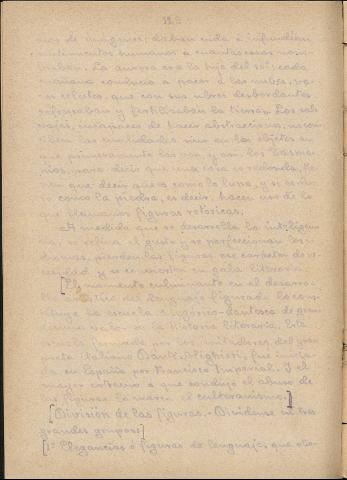 12
nos de imágenes; daban vida é infundían
sentimientos humanos á cuantas cosas nom-
braban. La aurora era la hija del sol; cada
mañana conducía á pacer á las nubes, va-
cas celestes, que con sus ubres desbordantes
refrescaban y fertilizaban la tierra. Los sal-
vajes, incapaces de hacer abstracciones, no con-
ciben las cualidades sino en los objetos en
que primeramente las ven y así los Tasma-
nios, para decir que una cosa es redonda, tie-
nen que decir que es como la luna, y si es du-
ra como la piedra, es decir, hacen uso de lo
que llamamos figuras retóricas.
A medida que se desarrolla la inteligen-
cia, se refina el gusto y se perfeccionan los i-
diomas, pierden las figuras ese carácter de ne-
cesidad y se convierten en gala literaria.
[El momento culminante en el desarro-
llo del lenguaje figurado lo cons-
tituye la escuela alegórico-dantesca de gran-
dísimo valor en la Historia literaria. Esta
escuela formada por los imitadores del gran
poeta italiano Dante Alighieri, fue inicia-
da en España por Francisco Imperial. Y el
mayor extremo á que condujo el abuso de
las figuras lo marca el culteranismo.]
[División de las figuras.- Divídense en tres
grandes grupos:]
[1º Elegancias ó figuras de lenguaje, que